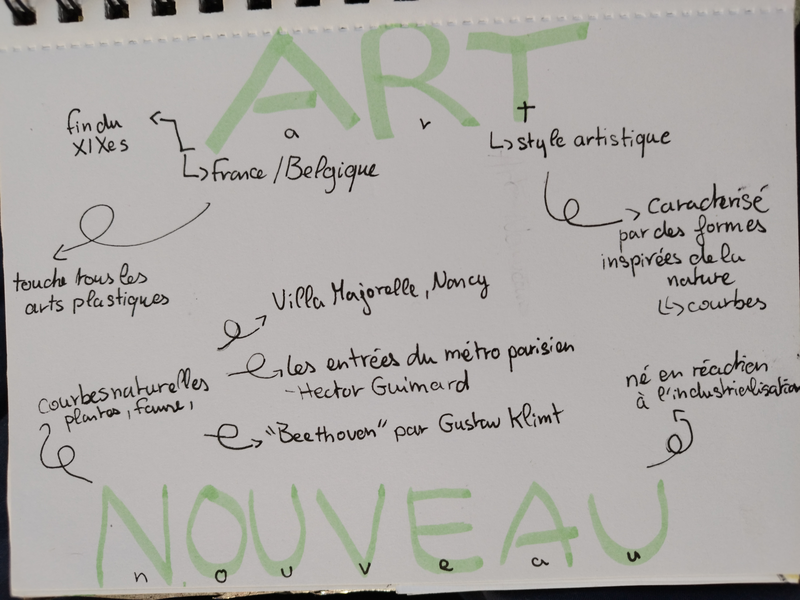 ART
a r t
fin du
XIXes
↳ France / Belgique
↳ style artistique
Caractérisé
par des formes
inspirées de la
nature
↳ courbes
touche tous les
arts plastiques
Villa Majorelle, Nancy
les entrées du métro parisien
- Hector Guimard
"Beethoven" par Gustav Klimt
courbes naturelles
plantes, faune,
né en réaction
à l'industrialisation
NOUVEAU
n o u v e a u